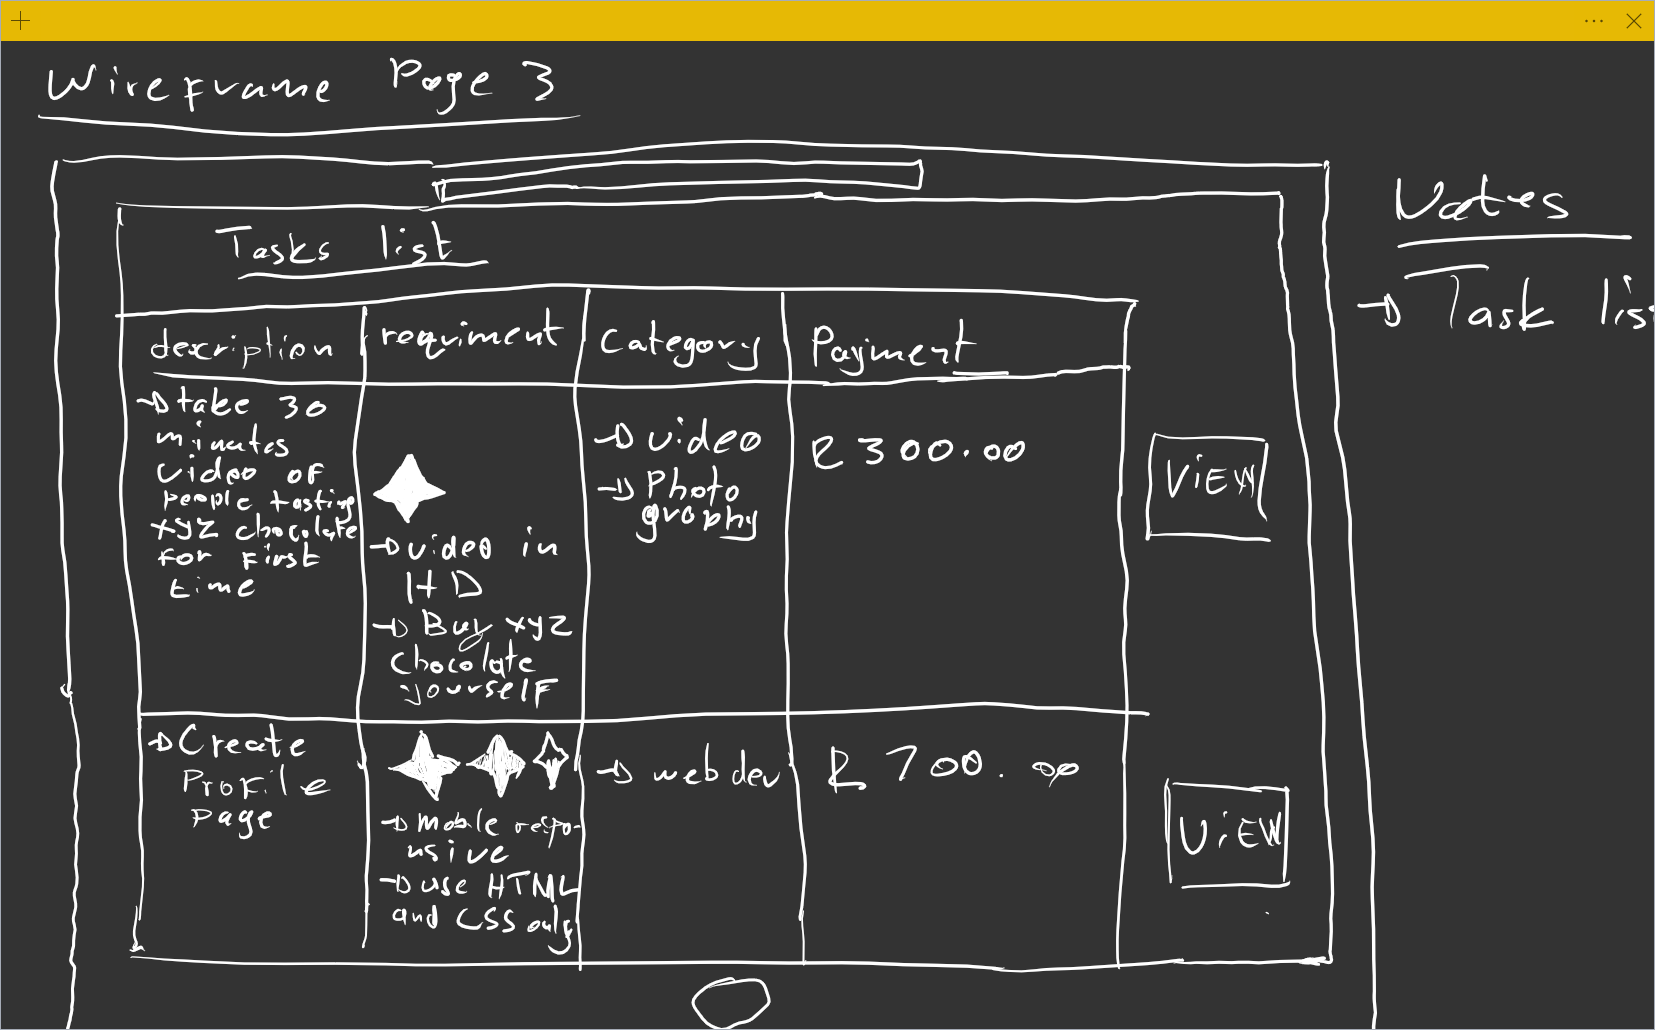 Wireframe Page 3
Notes
→ Task lis
Tasks list
description
requriment
Category
Payment
→ take 30
minutes
video of
people tasting
xyz chocolate
for first
time
→ video in
HD
→ Buy xyz
Chocolate
yourself
→ video
→ Photo
graphy
R 300.00
VIEW
→ Create
Profile
page
→ mobile respo-
nsive
→ use HTML
and CSS only
→ web dev
R 700.00
VIEW